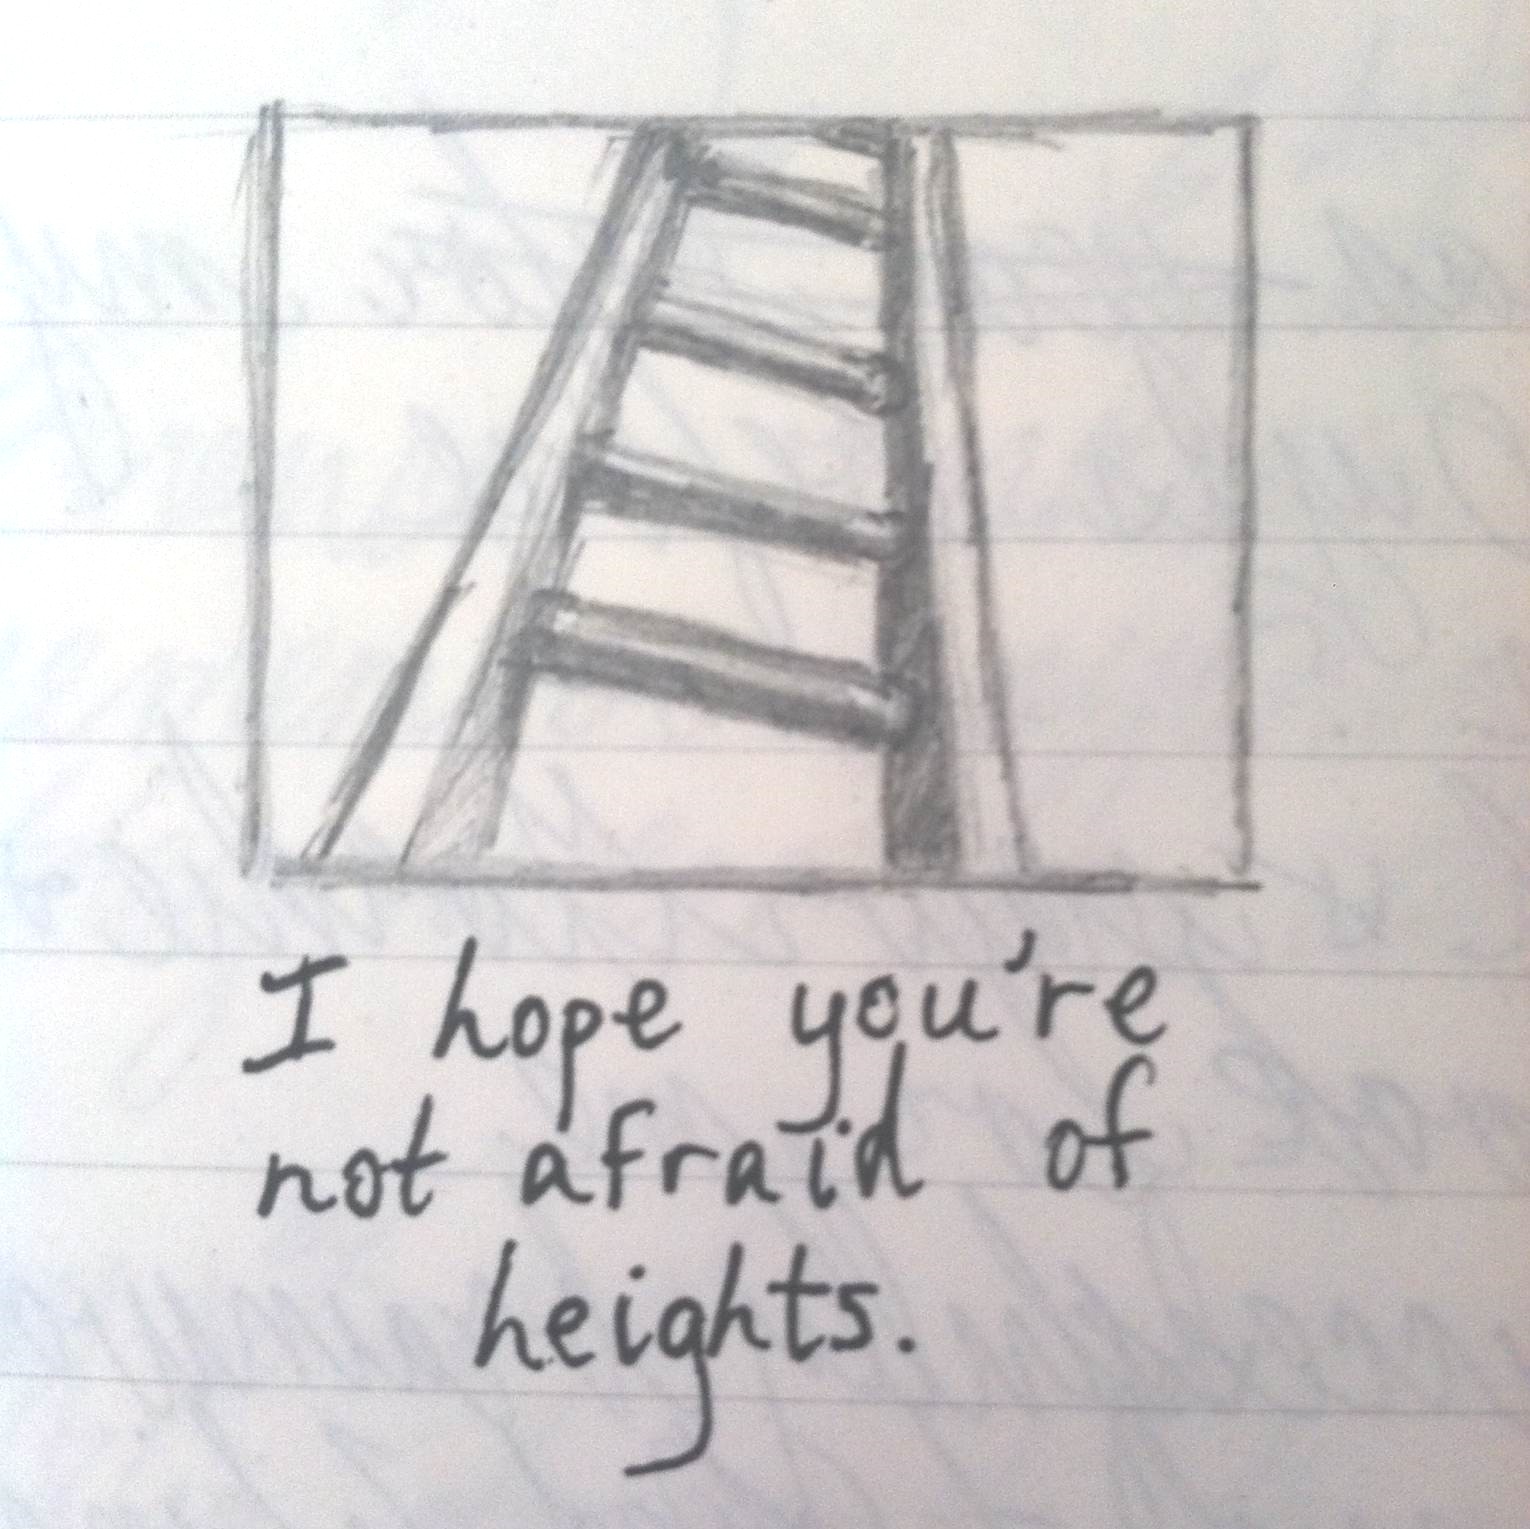 I hope you're
not afraid of
heights.